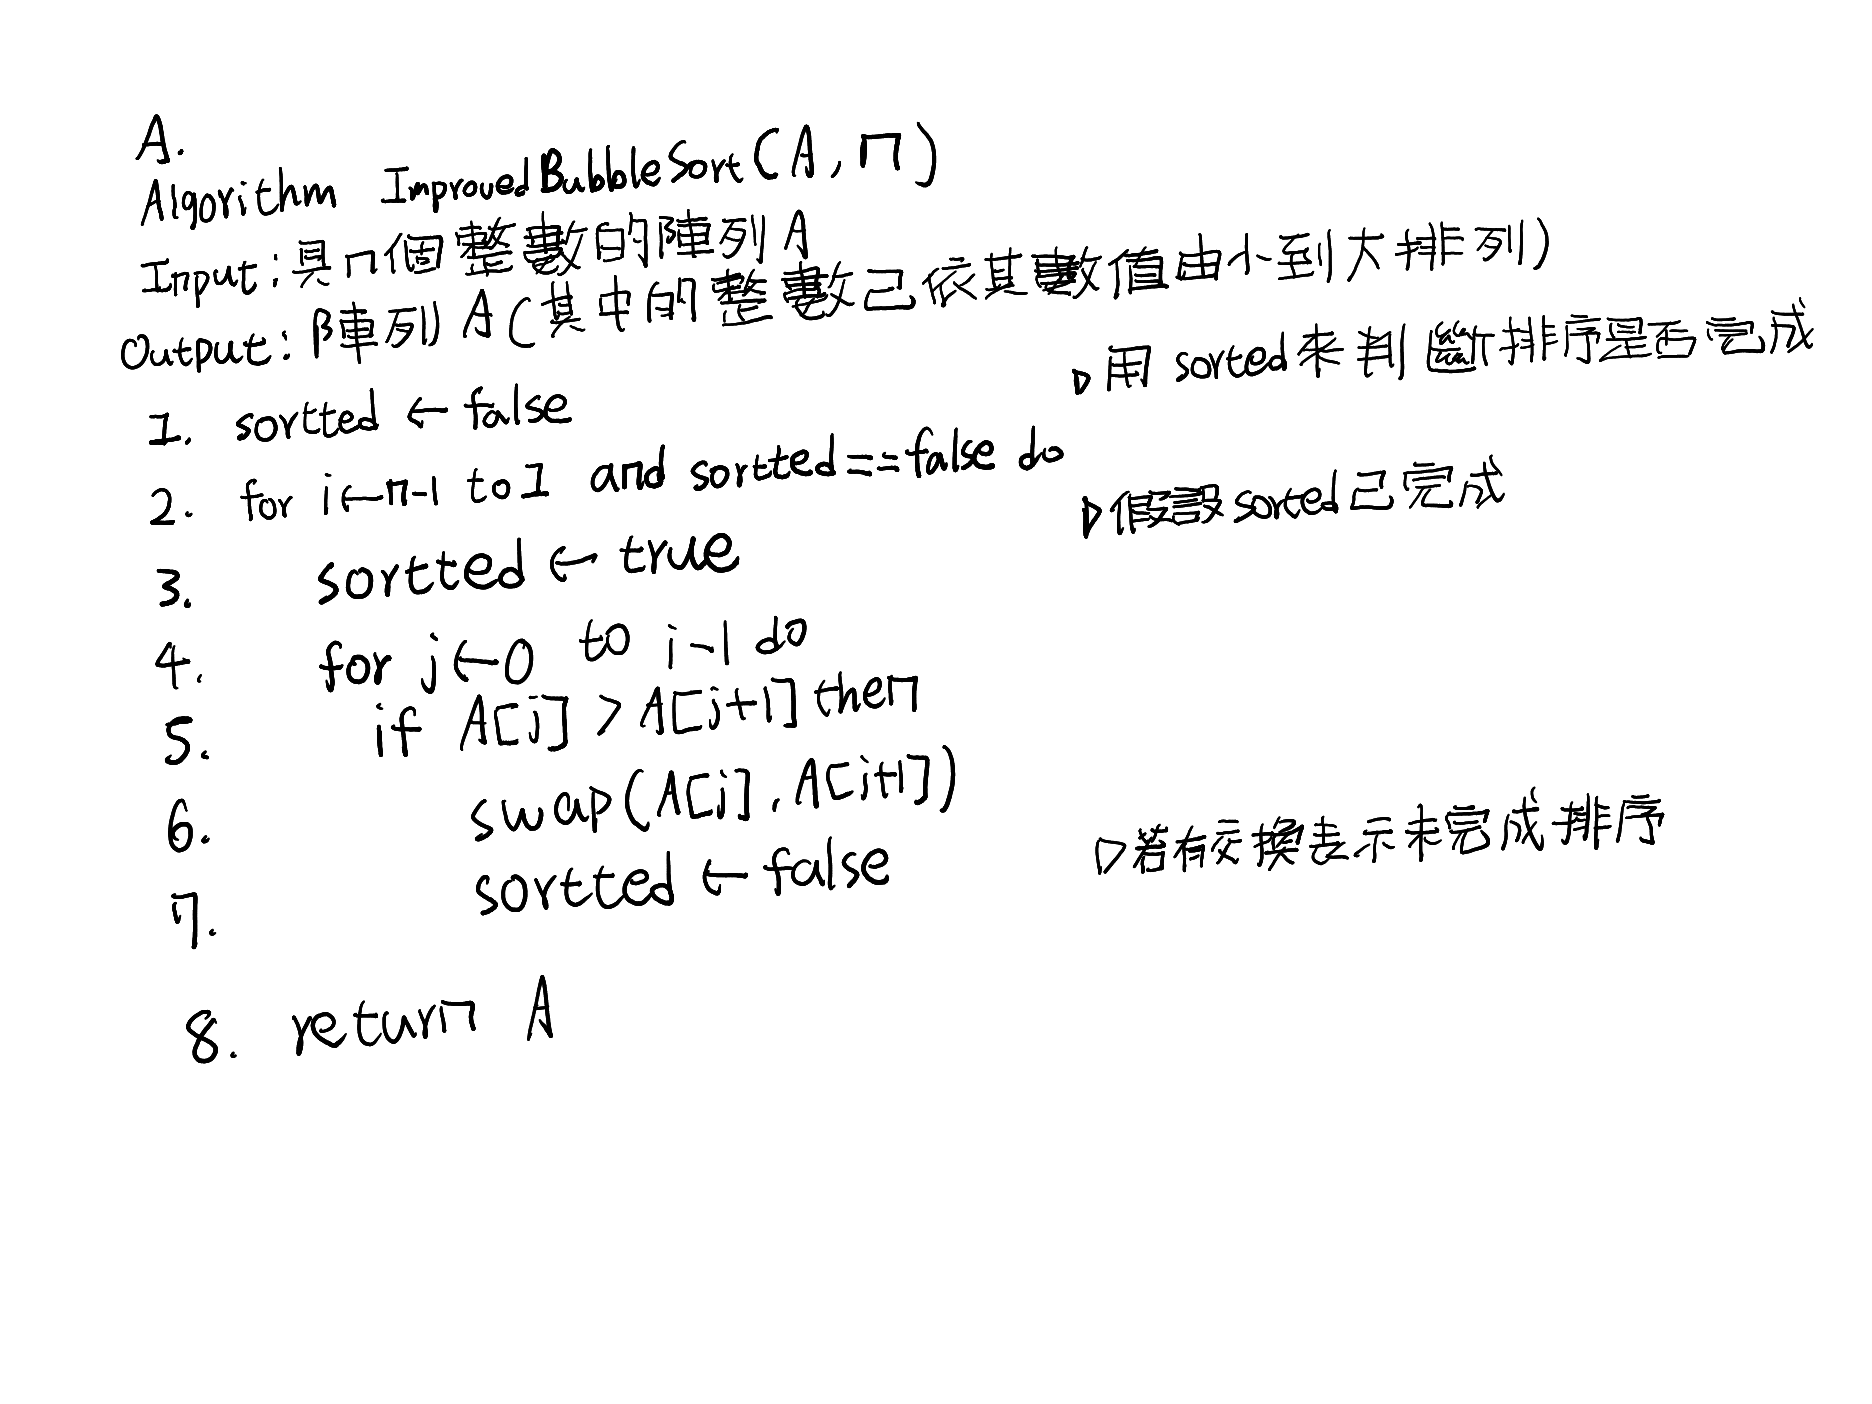 A.
Algorithm ImprovedBubbleSort(A, n)
Input: 具n個整數的陣列A
Output: 陣列A(其中的整數己依其數值由小到大排列)
1. sortted ← false ▷用sorted來判斷排序是否完成
2. for i←n-1 to 1 and sortted==false do
3. sortted ← true ▷假設sorted己完成
4. for j←0 to i-1 do
5. if A[j] > A[j+1] then
6. swap(A[j], A[j+1])
7. sortted ← false ▷若有交換表示未完成排序
8. return A